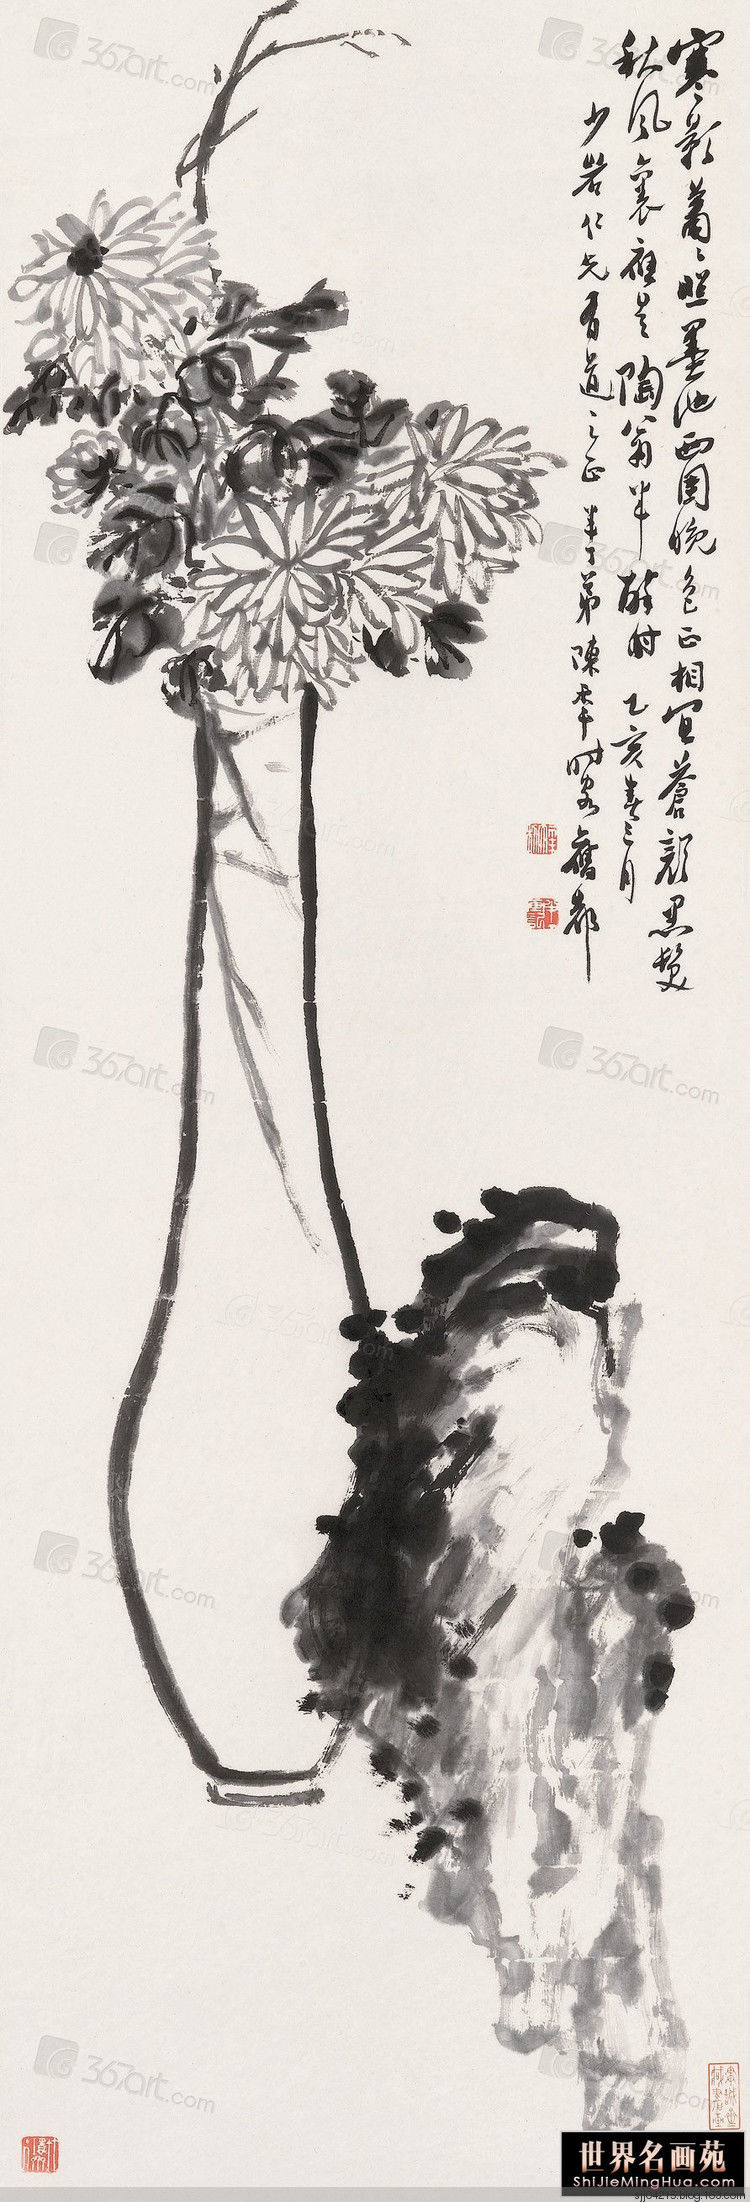 寒影蕭蕭照墨池西園晚色正相宜蒼顏黑髮
秋風裏應是陶翁半醉時 乙亥春三月
少岩仁兄有道之正 半丁弟陳年時客舊都
367art.com
世界名画苑
ShiJieMingHua.com